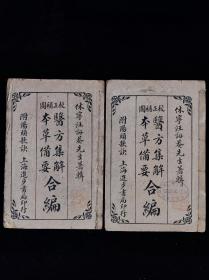 休寧汪訒菴先生著輯
校正補圖
醫方集解
本草備要
合編
附湯頭歌訣
上海進步書局印行
休寧汪訒菴先生著輯
校正補圖
醫方集解
本草備要
合編
附湯頭歌訣
上海進步書局印行